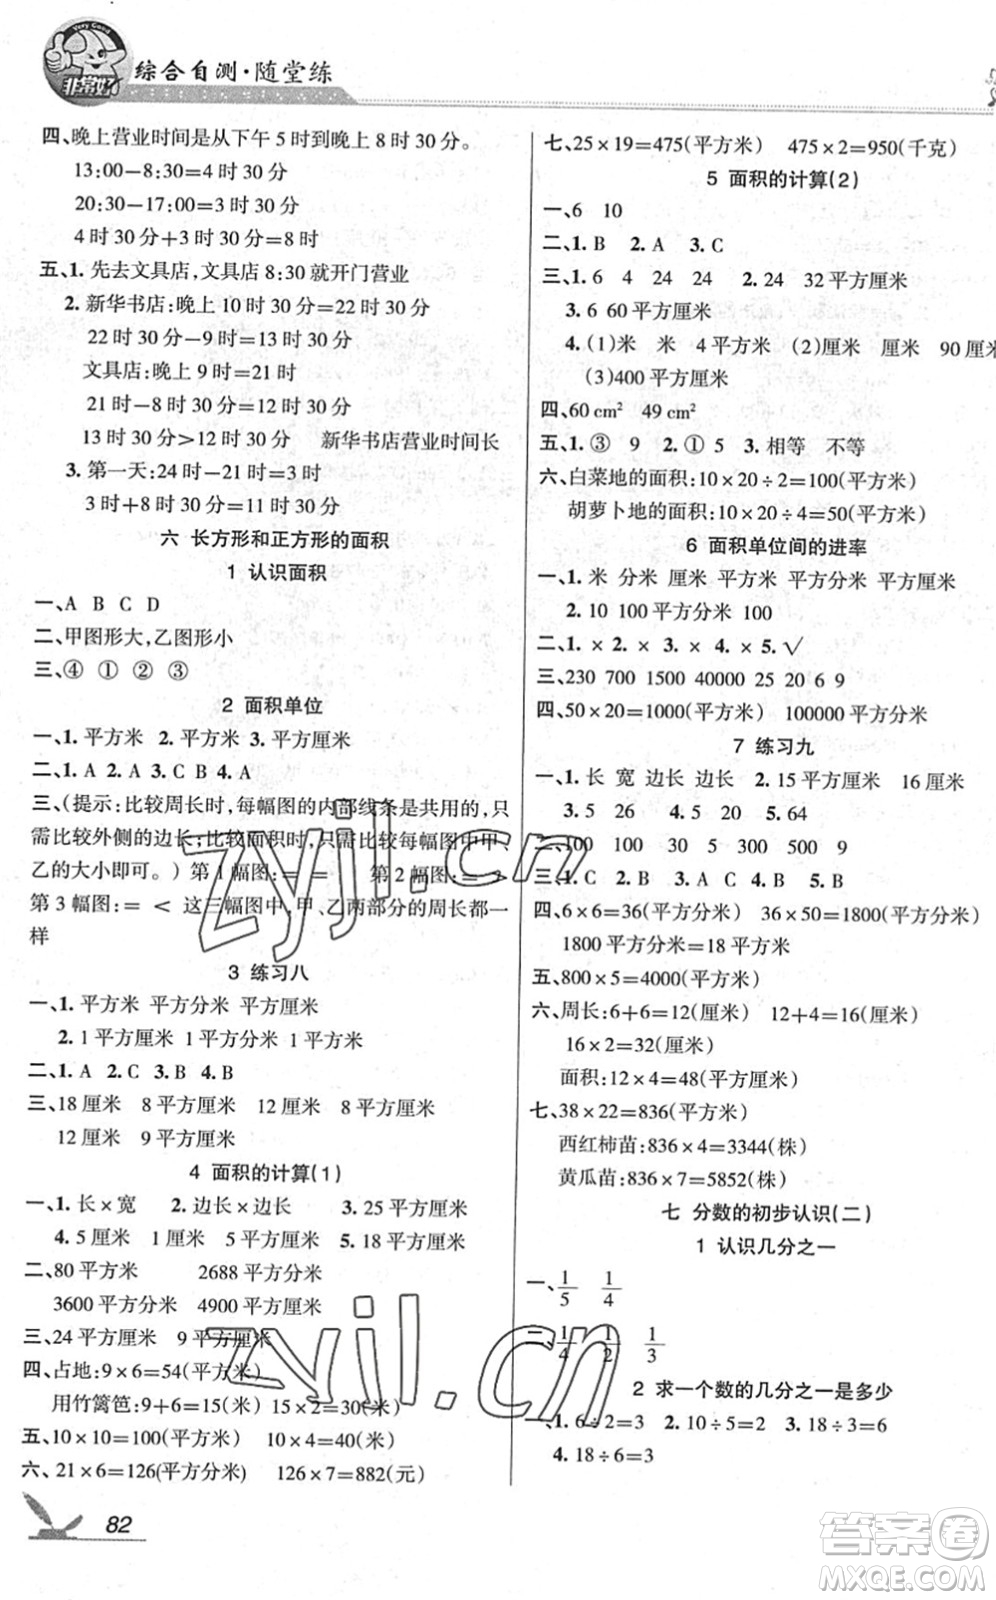 Very Good
非常好
综合自测·随堂练
四、晚上营业时间是从下午 5 时到晚上 8 时 30 分。
13:00-8:30=4 时 30 分
20:30-17:00=3 时 30 分
4 时 30 分+3 时 30 分=8 时
五、1. 先去文具店,文具店 8:30 就开门营业
2. 新华书店:晚上 10 时 30 分=22 时 30 分
22 时 30 分-9 时=13 时 30 分
文具店:晚上 9 时=21 时
21 时-8 时 30 分=12 时 30 分
13 时 30 分>12 时 30 分 新华书店营业时间长
3. 第一天:24 时-21 时=3 时
3 时+8 时 30 分=11 时 30 分
六 长方形和正方形的面积
1 认识面积
一、A B C D
二、甲图形大,乙图形小
三、④ ① ② ③
2 面积单位
一、1. 平方米 2. 平方米 3. 平方厘米
二、1. A 2. A 3. C B 4. A
三、(提示:比较周长时,每幅图的内部线条是共用的,只
需比较外侧的边长;比较面积时,只需比较每幅图中甲、
乙的大小即可。) 第 1 幅图:= = 第 2 幅图:=
第 3 幅图:= < 这三幅图中,甲、乙两部分的周长都一
样
3 练习八
一、1. 平方米 平方分米 平方厘米
2. 1 平方厘米 1 平方分米 1 平方米
二、1. A C 2. A 3. B 4. B
三、18 厘米 8 平方厘米 12 厘米 8 平方厘米
12 厘米 9 平方厘米
4 面积的计算(1)
一、1. 长×宽 2. 边长×边长 3. 25 平方厘米
4. 5 厘米 1 厘米 5 平方厘米 5. 18 平方厘米
二、80 平方米 2688 平方厘米
3600 平方分米 4900 平方厘米
三、24 平方厘米 9 平方厘米
四、占地:9×6=54(平方米)
用竹篱笆:9+6=15(米) 15×2=30(米)
五、10×10=100(平方米) 10×4=40(米)
六、21×6=126(平方米) 126×7=882(元)
82
七、25×19=475(平方米) 475×2=950(千克)
5 面积的计算(2)
一、6 10
二、1. B 2. A 3. C
三、1. 6 4 24 24 2. 24 32 平方厘米
3. 6 60 平方厘米
4. (1)米 米 4 平方米 (2)厘米 厘米 90 厘米
(3)400 平方厘米
四、60 cm² 49 cm²
五、1. ③ 9 2. ① 5 3. 相等 不等
六、白菜地的面积:10×20÷2=100(平方米)
胡萝卜地的面积:10×20÷4=50(平方米)
6 面积单位间的进率
一、1. 米 分米 厘米 平方米 平方分米 平方厘米
2. 10 100 平方分米 100
二、1. × 2. × 3. × 4. × 5. √
三、230 700 1500 40000 25 20 6 9
四、50×20=1000(平方米) 100000 平方分米
7 练习九
一、1. 长 宽 边长 边长 2. 15 平方厘米 16 厘米
3. 5 26 4. 20 20 5. 64
二、100 100 30 5 300 500 9
三、1. C 2. B 3. A C 4. B 5. B
四、6×6=36(平方分米) 36×50=1800(平方分米)
1800 平方分米=18 平方米
五、800×5=4000(平方米)
六、周长:6+6=12(厘米) 12+4=16(厘米)
16×2=32(厘米)
面积:12×4=48(平方厘米)
七、38×22=836(平方米)
西红柿苗:836×4=3344(株)
黄瓜苗:836×7=5852(株)
七 分数的初步认识(二)
1 认识几分之一
一、1/5 1/4
二、1/4 1/2 1/3
2 求一个数的几分之一是多少
一、1. 6÷2=3 2. 10÷5=2 3. 18÷3=6
4. 18÷6=3
zyjl.cn
zyjl.cn
答案圈
MXQE.COM